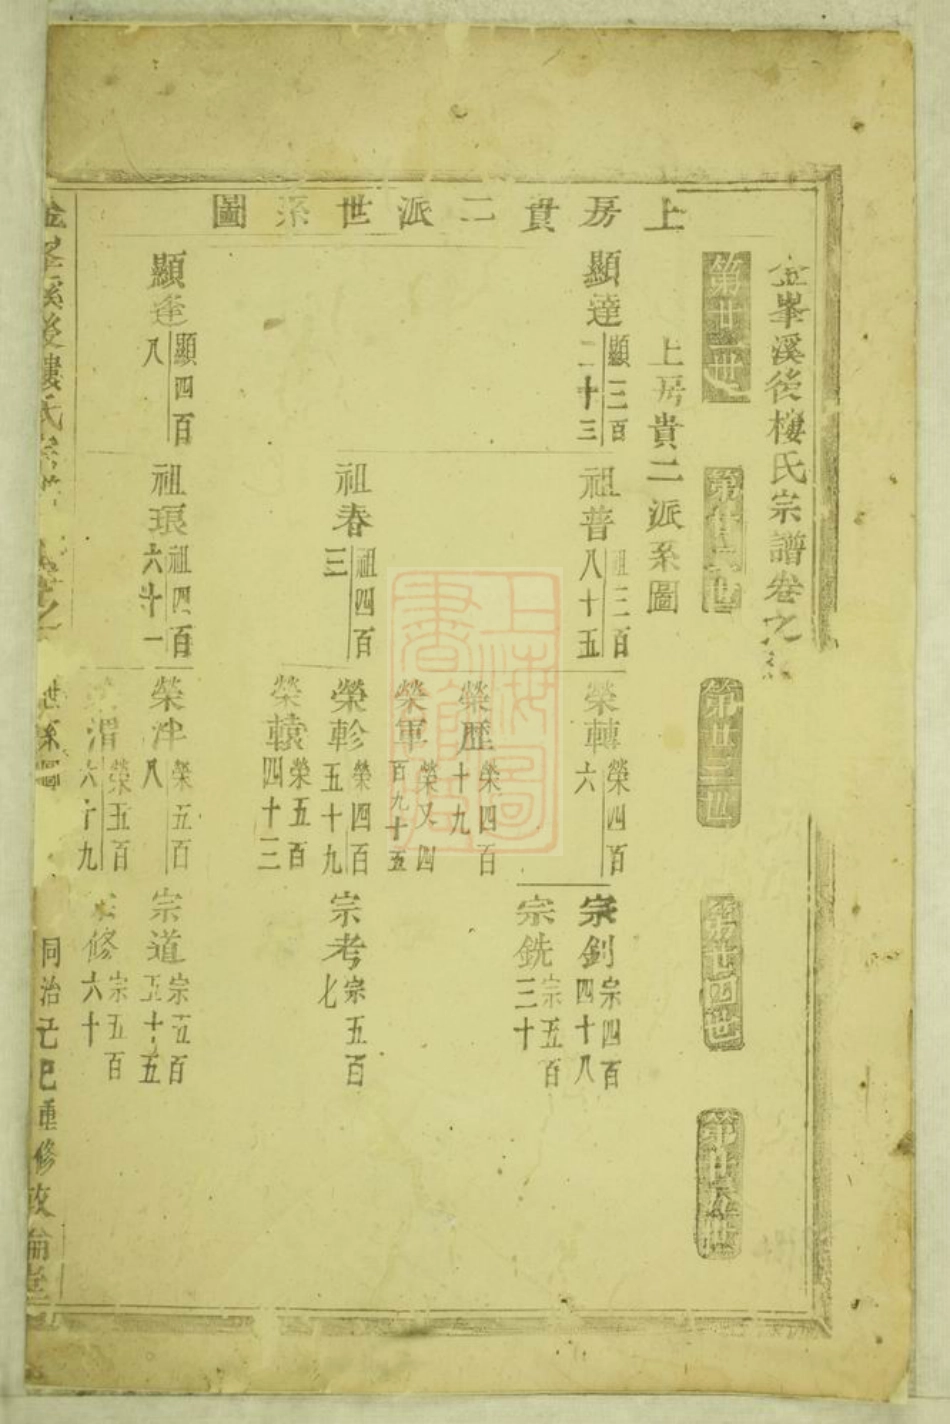 金峯溪後樓氏宗譜卷之
第廿一世
第廿二世
第廿三世
第廿四世
第廿五世
上房貴二派世系圖
上房貴二派系圖
顯達 顯三百二十三
祖普 祖三百八十五
榮轉 榮四百六
宗釗 宗四百四十八
宗銑 宗五百三十
榮歷 榮四百十九
榮軍 榮又四百九十五
祖春 祖四百三
榮軫 榮四百五十九
宗考 宗五百七
榮轅 榮五百四十三
顯逵 顯四百八
祖琅 祖四百六十一
榮沣 榮五百八
宗道 宗五百五十五
渭 榮五百六十九
修 宗五百六十
金峯溪後樓氏宗譜
世系圖
同治己巳重修敦倫堂
上海圖書館藏